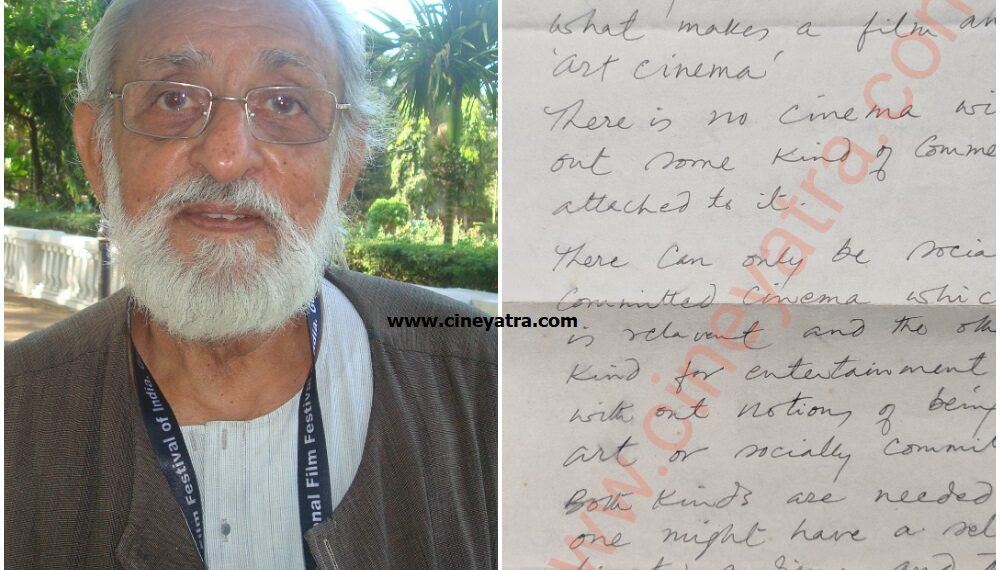 www.cineyatra.com
Film Festival of India.
onal Film Festiv
what makes a film an
'art cinema'
There is no cinema wi
out some kind of Comme
attached to it.
There can only be socia
Committed cinema whic
is relavent and the oth
kind for entertainment
with out notions of being
art or socially commit
Both kinds are needed
one might have a sel
www.cineyatra.com